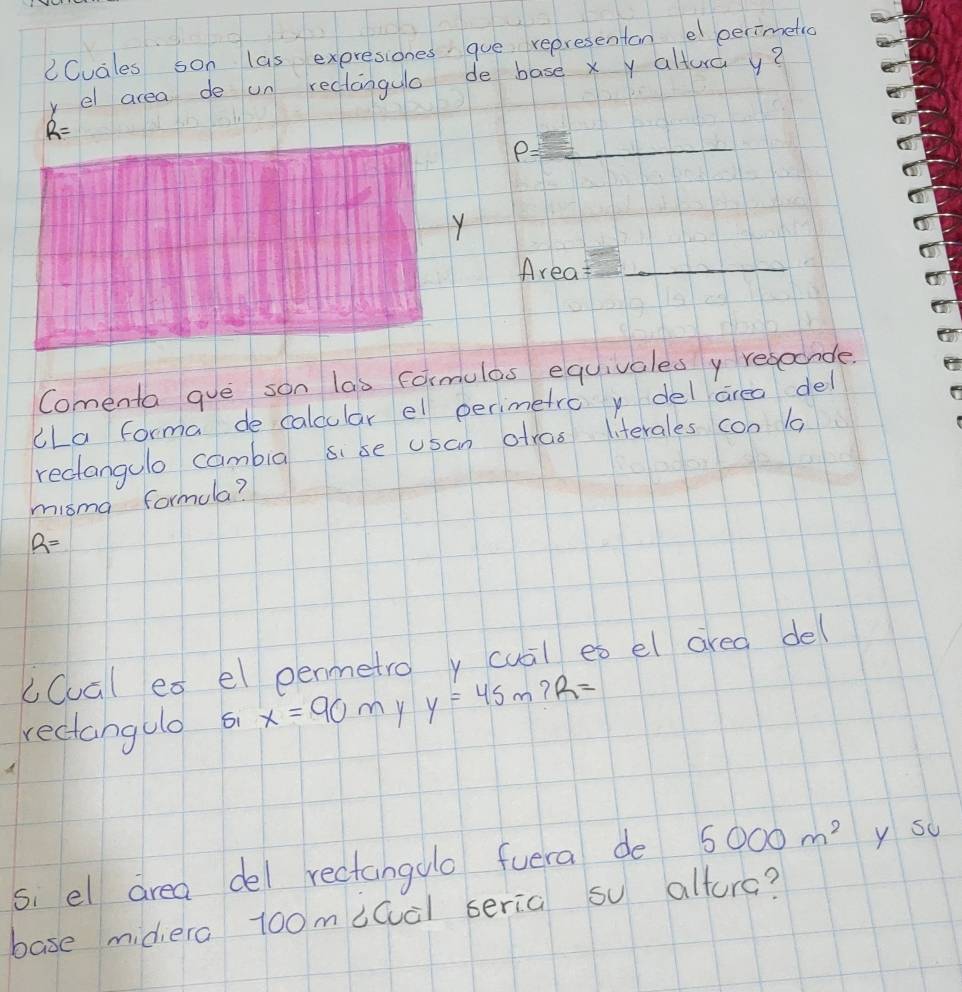 ¿Cuáles son las expresiones que representan el perímetro
y el area de un rectángulo de base x y altura y?
R=
P=
y
Area=
Comenta qué son las fórmulas equivales y responde.
¿La forma de calcular el perimetro y del área del
rectangulo cambia si se usan otras literales con la
misma formula?
R=
¿Cual es el perimetro y cuál es el área del
rectangulo si x = 90 m y y = 45 m? R=
Si el área del rectangulo fuera de 5000 m² y su
base midiera 100 m ¿Cuál seria su altura?